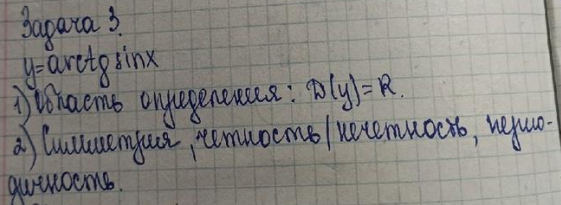 Задача 3.
y=arctg sinx
1) Область определения: D(y)=R.
2) Симметрия, четность/нечетность, перио-
дичность.